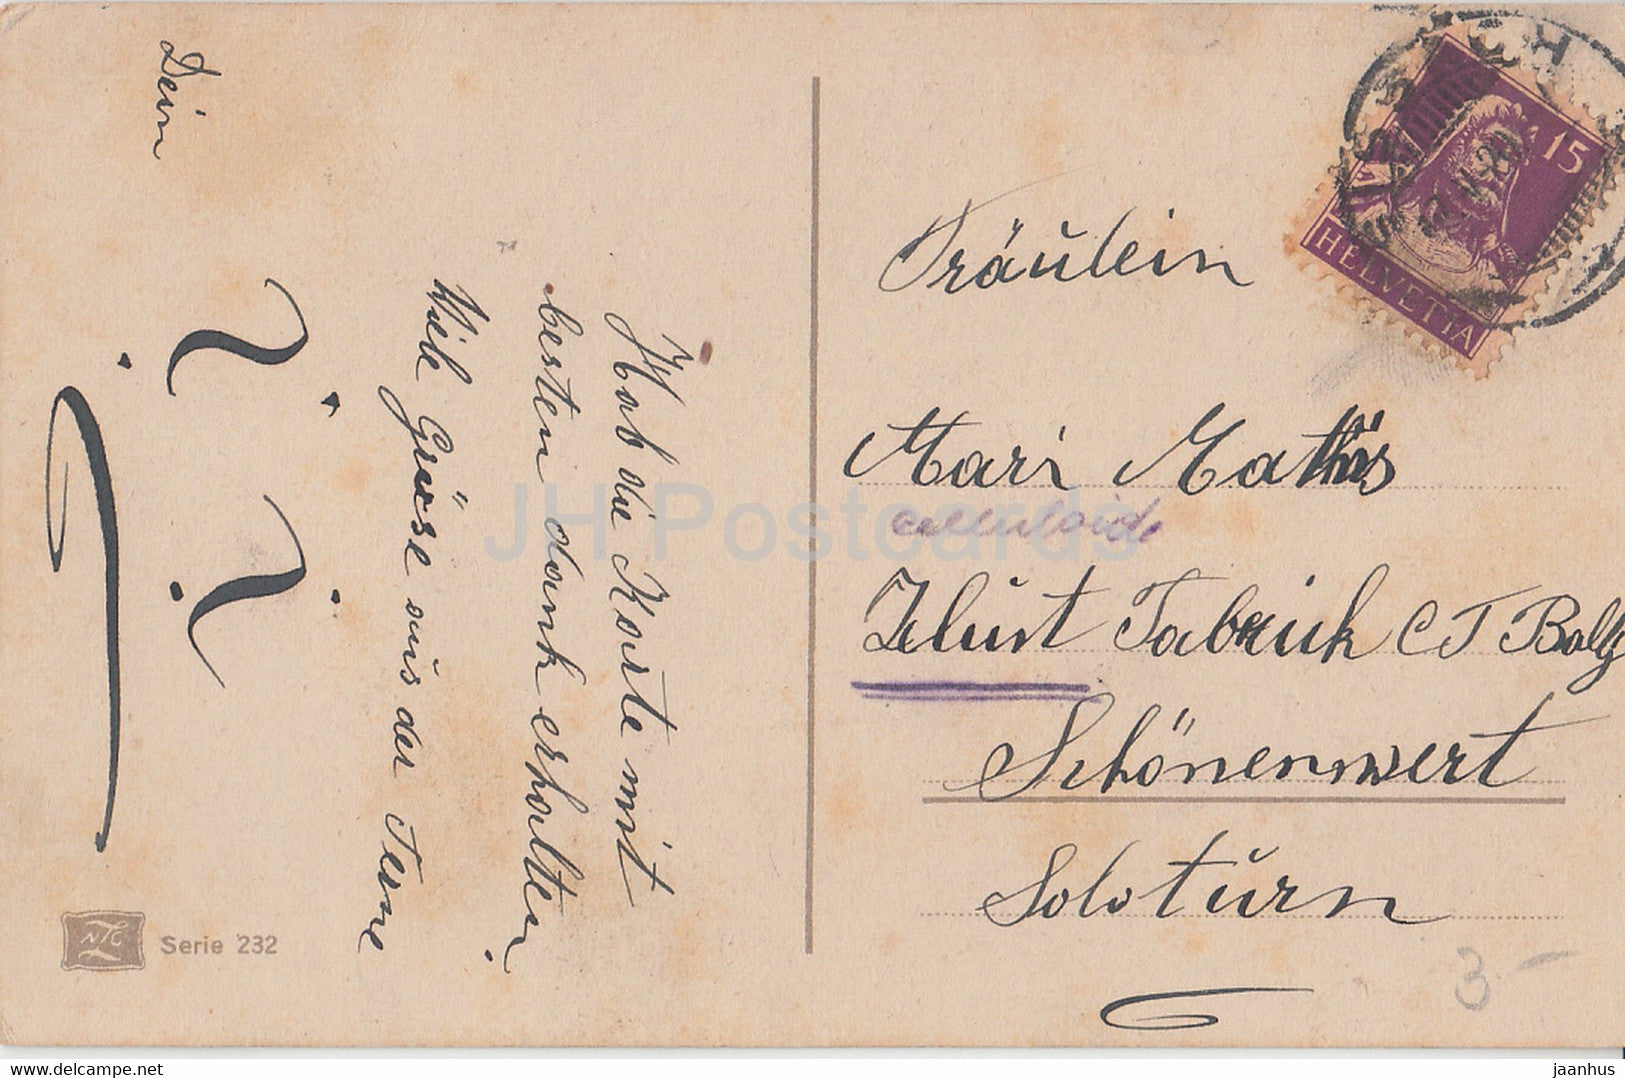 Hab die Karte mit
besten dank erhalten
Viele Grüsse aus der Ferne
Dein
Serie 232
NTC
Fräulein
Mari Mathis
celluloide
Fabrick C F Bally
Schönenwert
Soloturn
3 -
15
HELVETIA
JH Postcards
www.delcampe.net
jaanhus